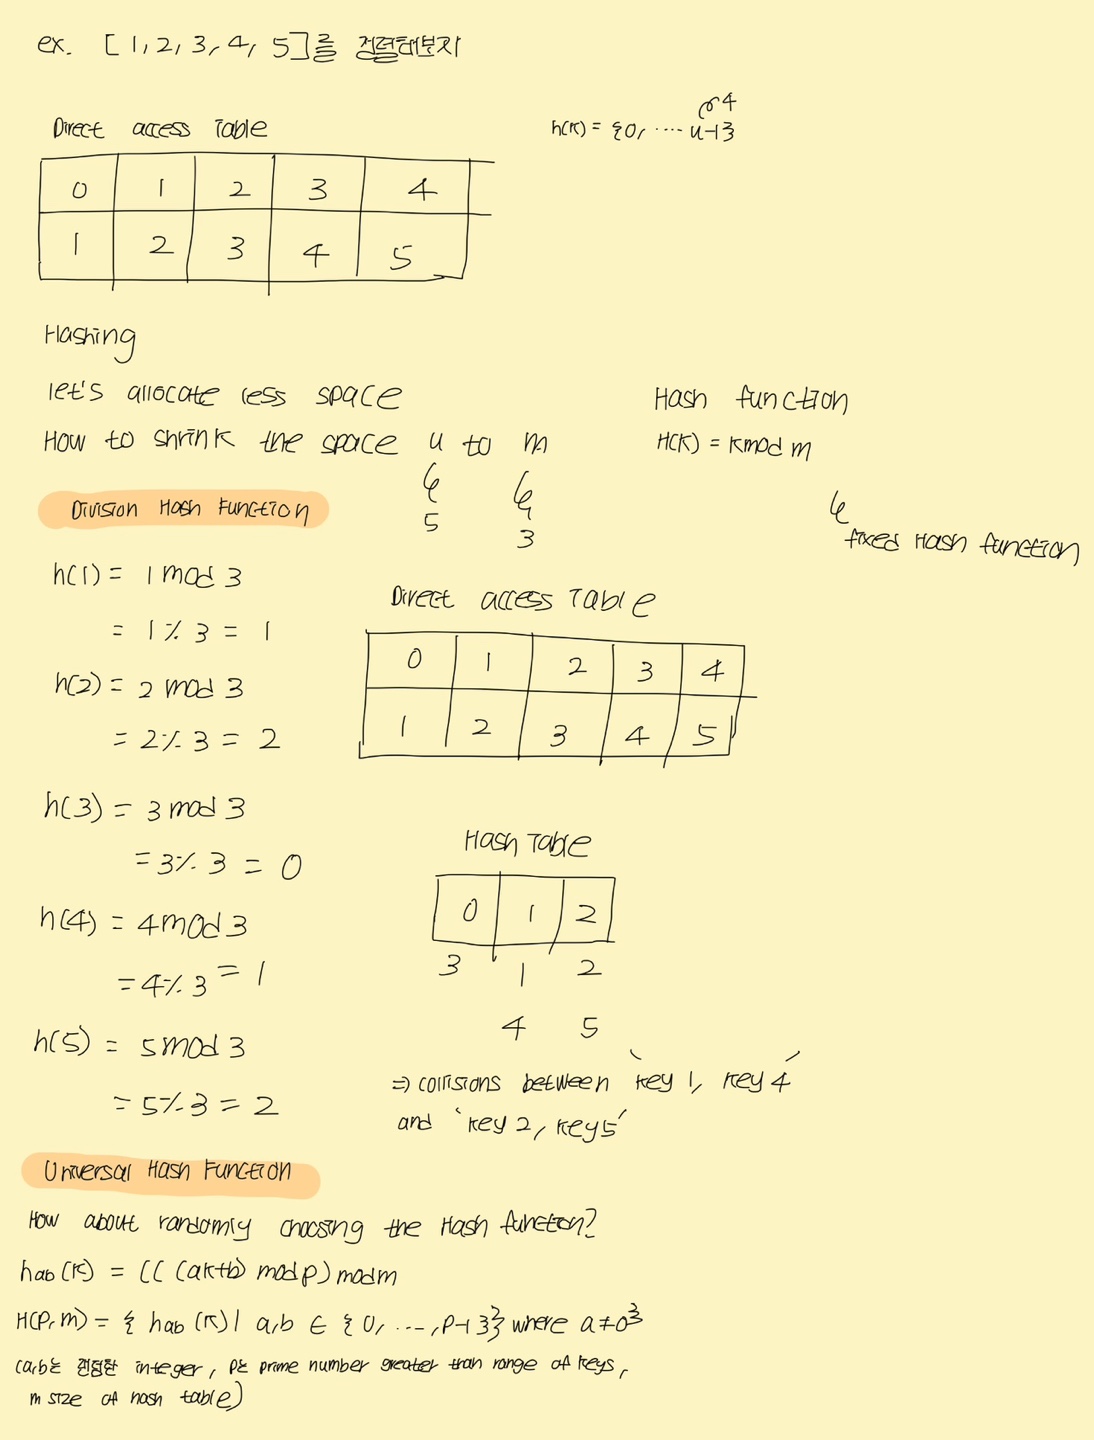 ex. [1, 2, 3, 4, 5]를 정렬해보자
Direct access Table
0 1 2 3 4
1 2 3 4 5
4
h(K) = {0, ···· u-1}
Hashing
let's allocate less space
How to shrink the space u to m
5 3
Hash function
H(K) = K mod m
fixed Hash function
Division Hash Function
h(1) = 1 mod 3
= 1 % 3 = 1
h(2) = 2 mod 3
= 2 % 3 = 2
h(3) = 3 mod 3
= 3 % 3 = 0
h(4) = 4 mod 3
= 4 % 3 = 1
h(5) = 5 mod 3
= 5 % 3 = 2
Direct access Table
0 1 2 3 4
1 2 3 4 5
Hash Table
0 1 2
3 1 2
4 5
⇒ collisions between 'key 1, key 4'
and 'key 2, key 5'
Universal Hash Function
How about randomly choosing the Hash function?
hab(K) = (( (aK+b) mod p) mod m
H(P, m) = { hab(K) | a, b ∈ {0, ..., P-1}} where a≠0}
(a,b는 integer, P는 prime number greater than range of keys,
m size of hash table)